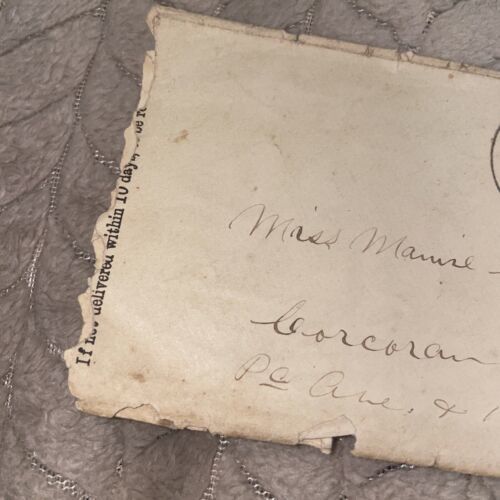 If not delivered within 10 days, to be r
Miss Mamie
Corcoran
Pa Ave. &